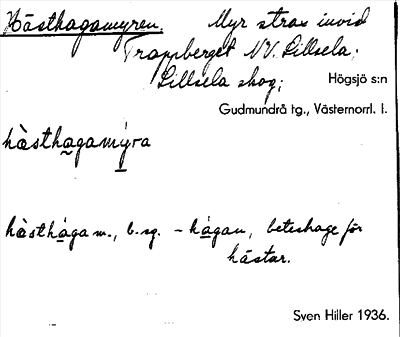 Hästhagamyren. Myr strax invid
Trappberget NV. Lillsela;
Lillsela skog; Högsjö s:n
Gudmundrå tg., Västernorrl. l.
hàsthagamýra
hàsthága m., b.sg. -hágan, beteshage för
hästar.
Sven Hiller 1936.